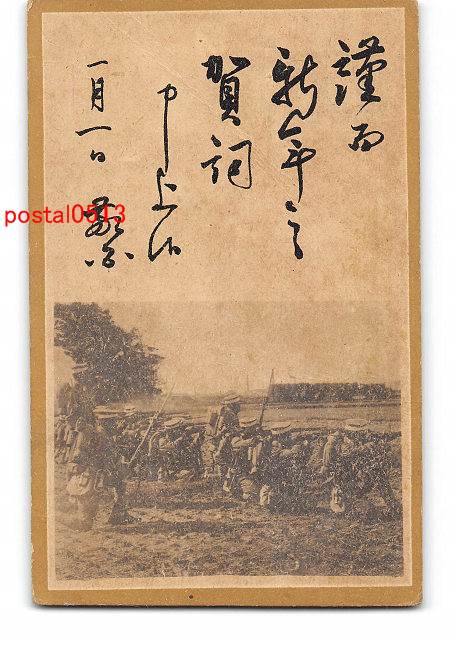 謹而
新年之
賀詞
申上候
一月一日
postal0513